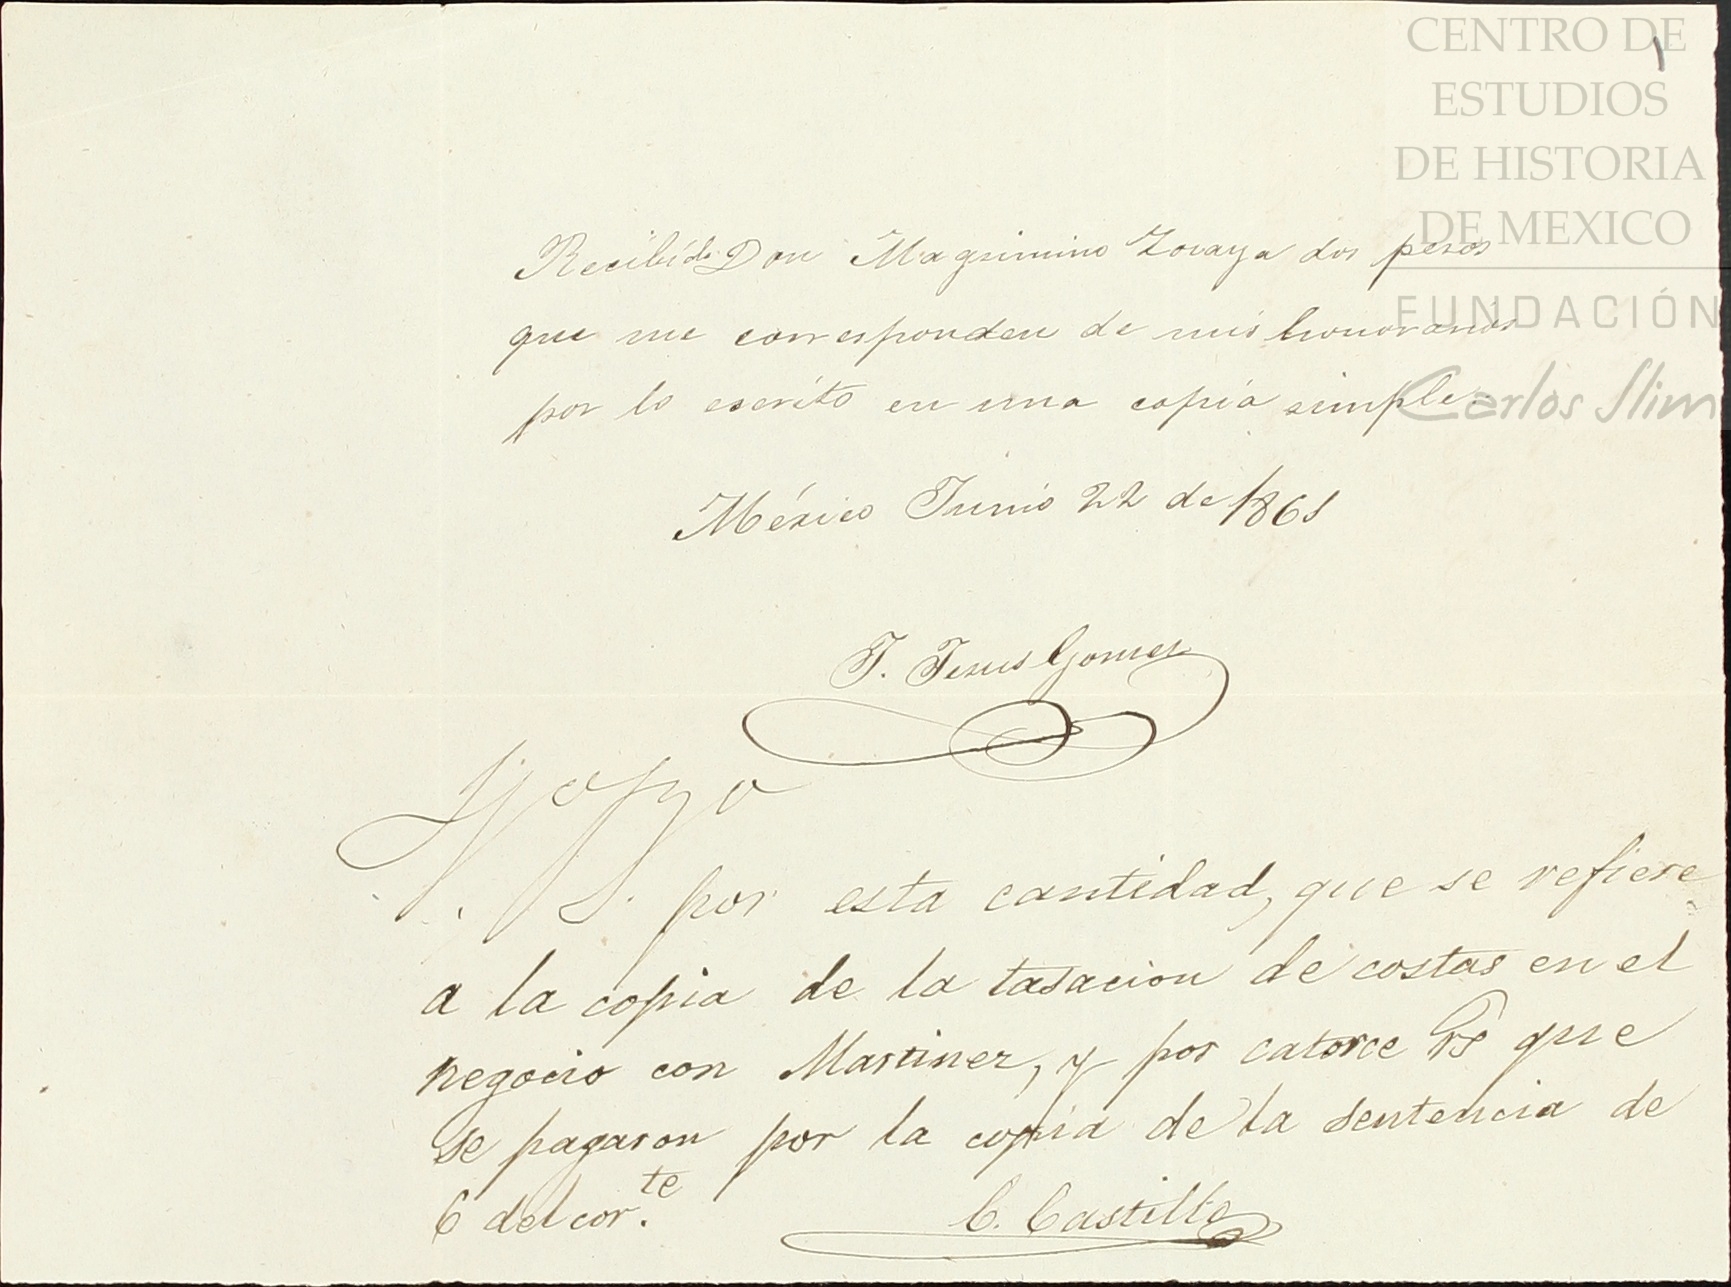 CENTRO DE
ESTUDIOS
DE HISTORIA
DE MEXICO
FUNDACIÓN
Carlos Slim
1
Recibí de Don Magsimino Zovaya dos pesos
que me corresponden de mis honorarios
por lo escrito en una copia simple.
México Junio 22 de 1861
J. Jesus Gomez
por esta cantidad, que se refiere
a la copia de la tasacion de costas en el
negocio con Martinez, y por catorce rs̃ que
se pagaron por la copia de la sentencia de
6 del cor.te
C. Castillo